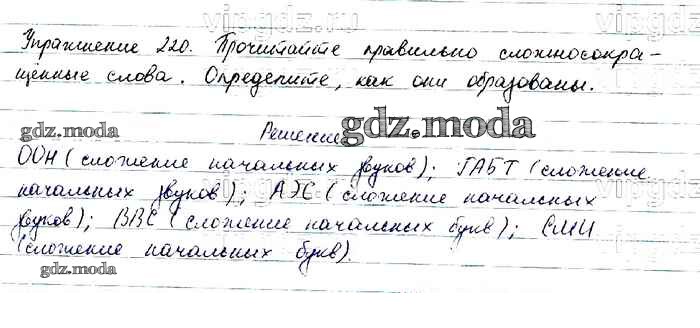 Упражнение 220. Прочитайте правильно сложносокра-
щенные слова. Определите, как они образованы.
Решение
ООН (сложение начальных звуков); ГАБТ (сложение
начальных звуков); АЭС (сложение начальных
звуков); ВВС (сложение начальных букв); СМИ
(сложение начальных букв).
vipgdz.ru
gdz.moda
gdz.moda
gdz.moda